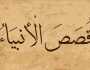 قَصَصُ الْأَنْبِيَاءِ